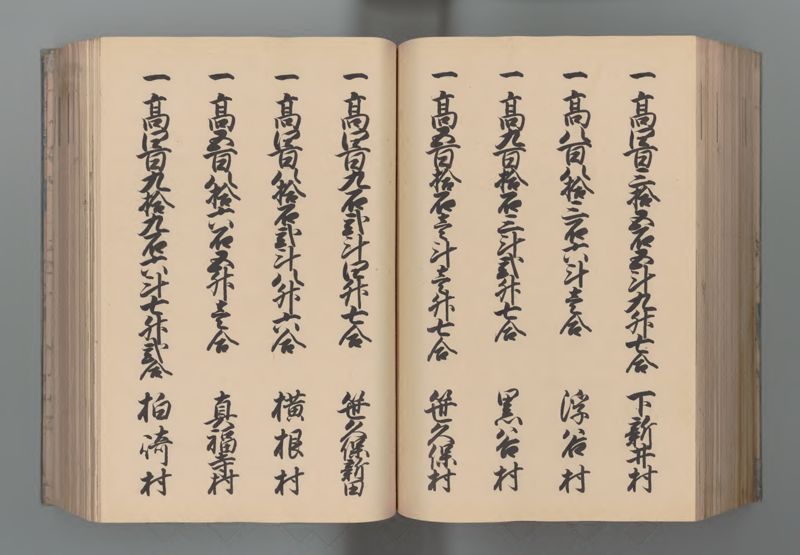 一 高四百三拾五石五斗九升七合 下新井村
一 高八百八拾三石六斗壱合 浮谷村
一 高九百拾石三斗弐升七合 黒谷村
一 高五百拾石壱斗壱升七合 笹久保村
一 高四百九石弐斗四升七合 笹久保新田
一 高四百八拾石弐斗八升六合 横根村
一 高五百八拾六石五升壱合 真福寺村
一 高四百九拾九石六斗七升弐合 柏崎村